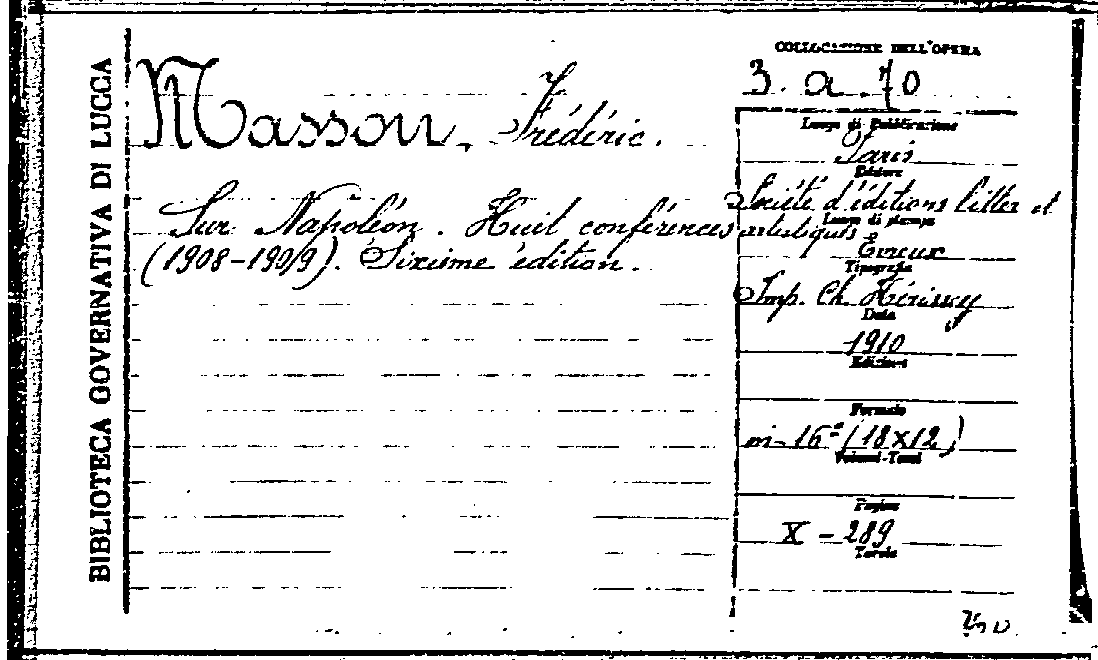 BIBLIOTECA GOVERNATIVA DI LUCCA
Masson, Frédéric.
Sur Napoléon. Huit conférences
(1908-1909). Sixième édition.
COLLOCAZIONE DELL'OPERA
3. a. 70
Luogo di Pubblicazione
Paris
Editore
Société d'éditions litter et
artistiques
Luogo di stampa
Evreux
Tipografia
Imp. Ch. Hérissey
Data
1910
Edizione
Formato
in-16° (18x12)
Volumi-Tomi
Pagine
X - 289
Tavole